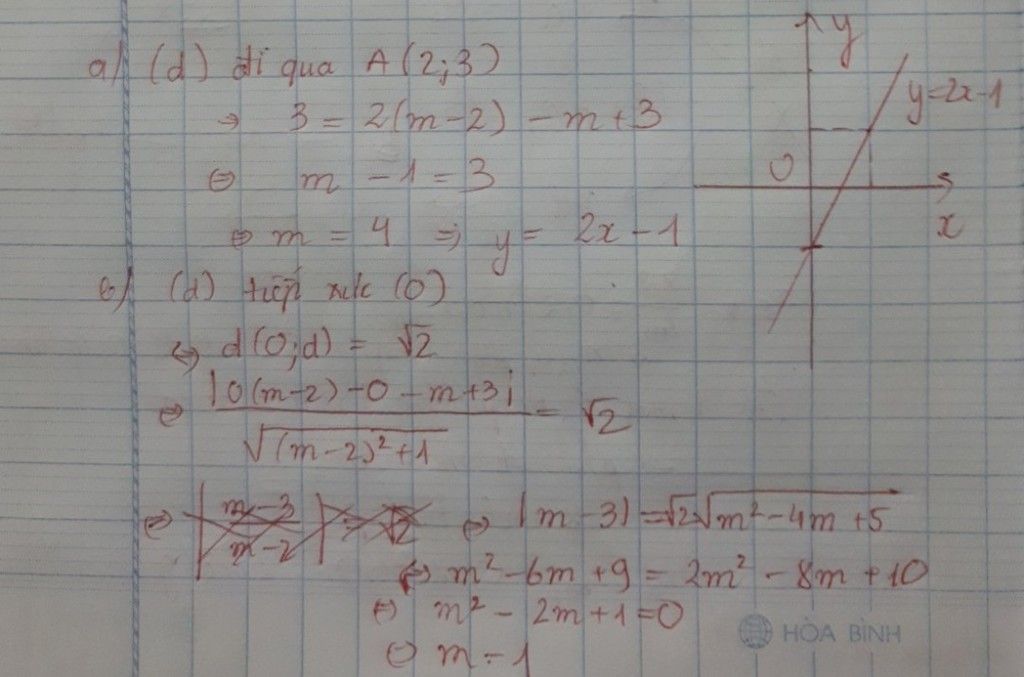 a) (d) đi qua A(2;3)
→ 3 = 2(m-2) - m+3
⇔ m - 1 = 3
⇔ m = 4 ⇒ y = 2x - 1
y
y=2x-1
O
x
b) (d) tiếp xúc (O)
⇔ d(O;d) = √2
⇔ |0(m-2) - 0 - m+3| / √((m-2)²+1) = √2
⇔ |m-3 / m-2| = √2 ⇔ |m-3| = √2√(m²-4m+5)
⇔ m²-6m+9 = 2m²-8m+10
⇔ m²-2m+1=0
⇔ m = 1
HÒA BÌNH